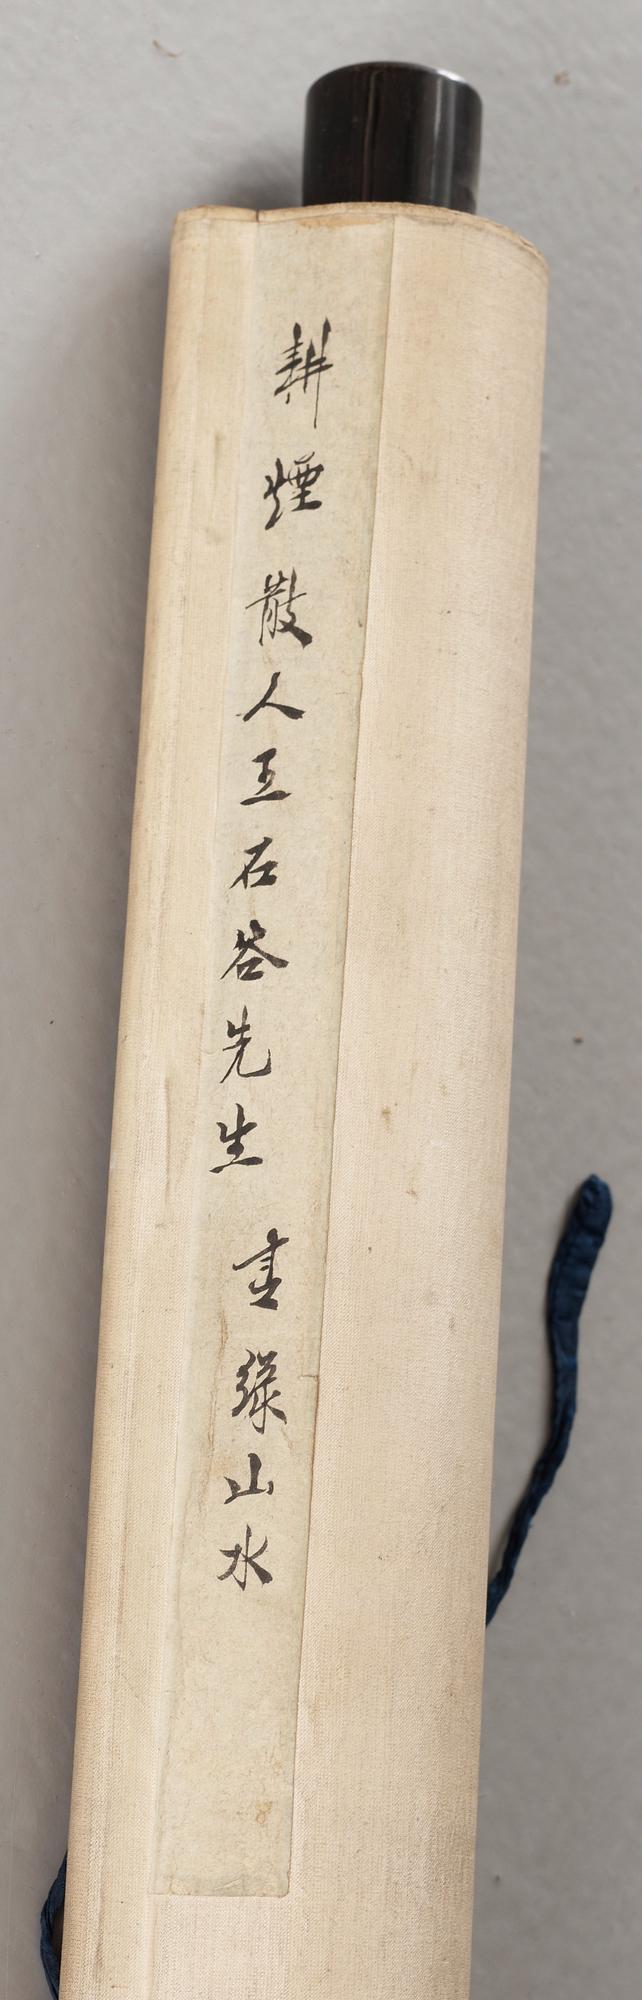 耕煙散人王石谷先生 青綠山水